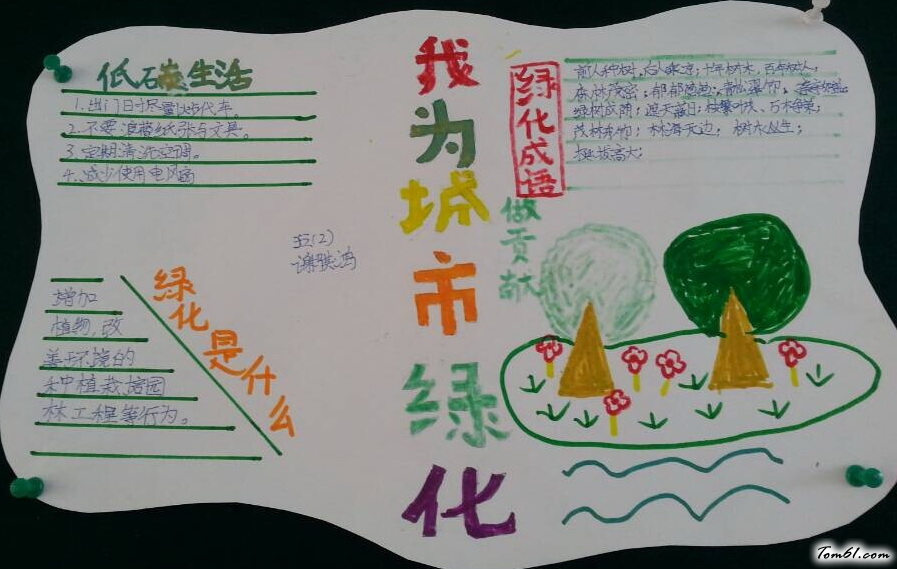 低碳生活
1.出门时尽量以步代车。
2.不要浪费纸张与文具。
3.定期清洗空调。
4.减少使用电风扇
五(2)
绿化是什么
增加
植物,改
善环境的
种植栽培园
林工程等行为。
我为城市绿化
做贡献
绿化成语
前人种树,后人乘凉;十年树木,百年树人;
森林茂密;郁郁葱葱;
绿树成阴;遮天蔽日;枝繁叶茂、万木争荣;
茂林修竹;林海无边;树木丛生;
挺拔高大;
Tom61.com